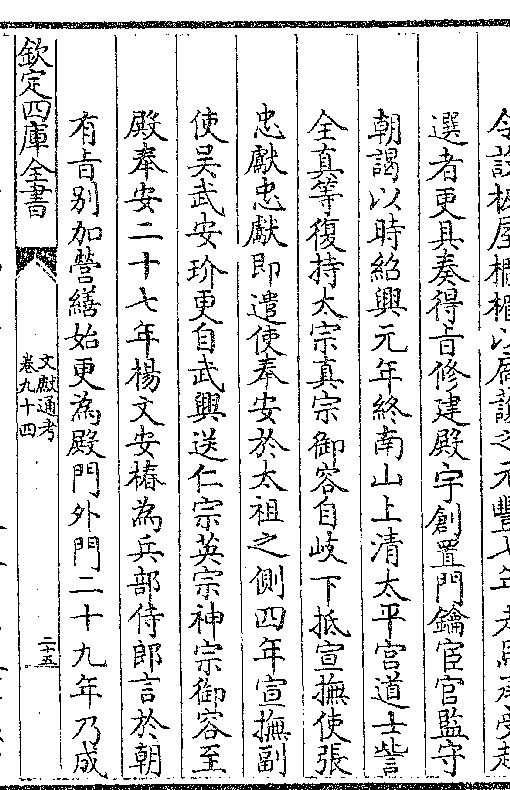 令設板屋櫺楯以扃護之元豐七年走馬承受趙
選者更具奏得㫖修建殿宇創置門鑰宦官監守
朝謁以時紹興元年終南山上清太平宫道士訾
全真等復持太宗真宗御容自岐下抵宣撫使張
忠獻忠獻即遣使奉安於太祖之側四年宣撫副
使吴武安玠更自武興送仁宗英宗神宗御容至
殿奉安二十七年楊文安椿為兵部侍郎言於朝
有㫖别加營繕始更為殿門外門二十九年乃成
欽定四庫全書
文獻通考
卷九十四
二十五